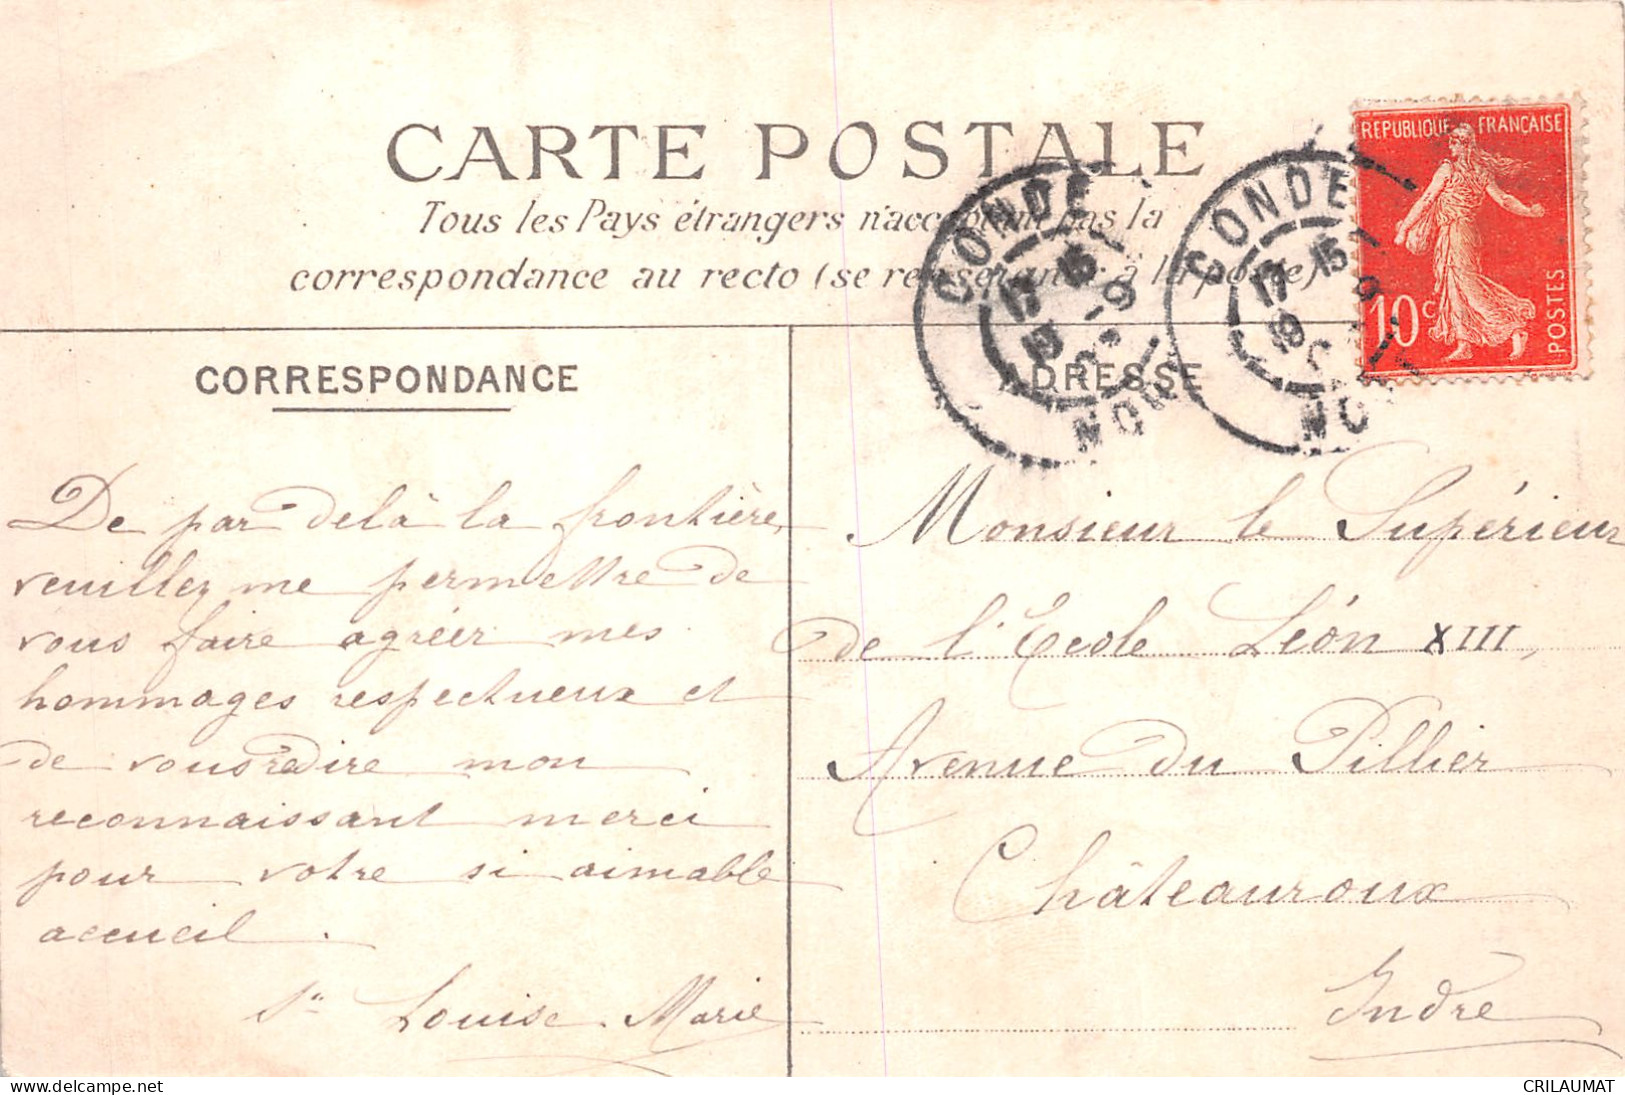 CARTE POSTALE
Tous les Pays étrangers n'acceptent pas la
correspondance au recto (se renseigner à la poste)
REPUBLIQUE FRANÇAISE
10c
POSTES
CONDE
17 15
9
19
NORD
CONDE
17 15
9
19
NO
CORRESPONDANCE
ADRESSE
De par delà la frontière,
veuillez me permettre de
vous faire agréer mes
hommages respectueux et
de vous redire mon
reconnaissant merci
pour votre si aimable
accueil.
Sr Louise. Marie
Monsieur le Supérieur
de l'Ecole Léon XIII,
Avenue du Pillier
Châteauroux
Indre
delcampe.net
CRILAUMAT